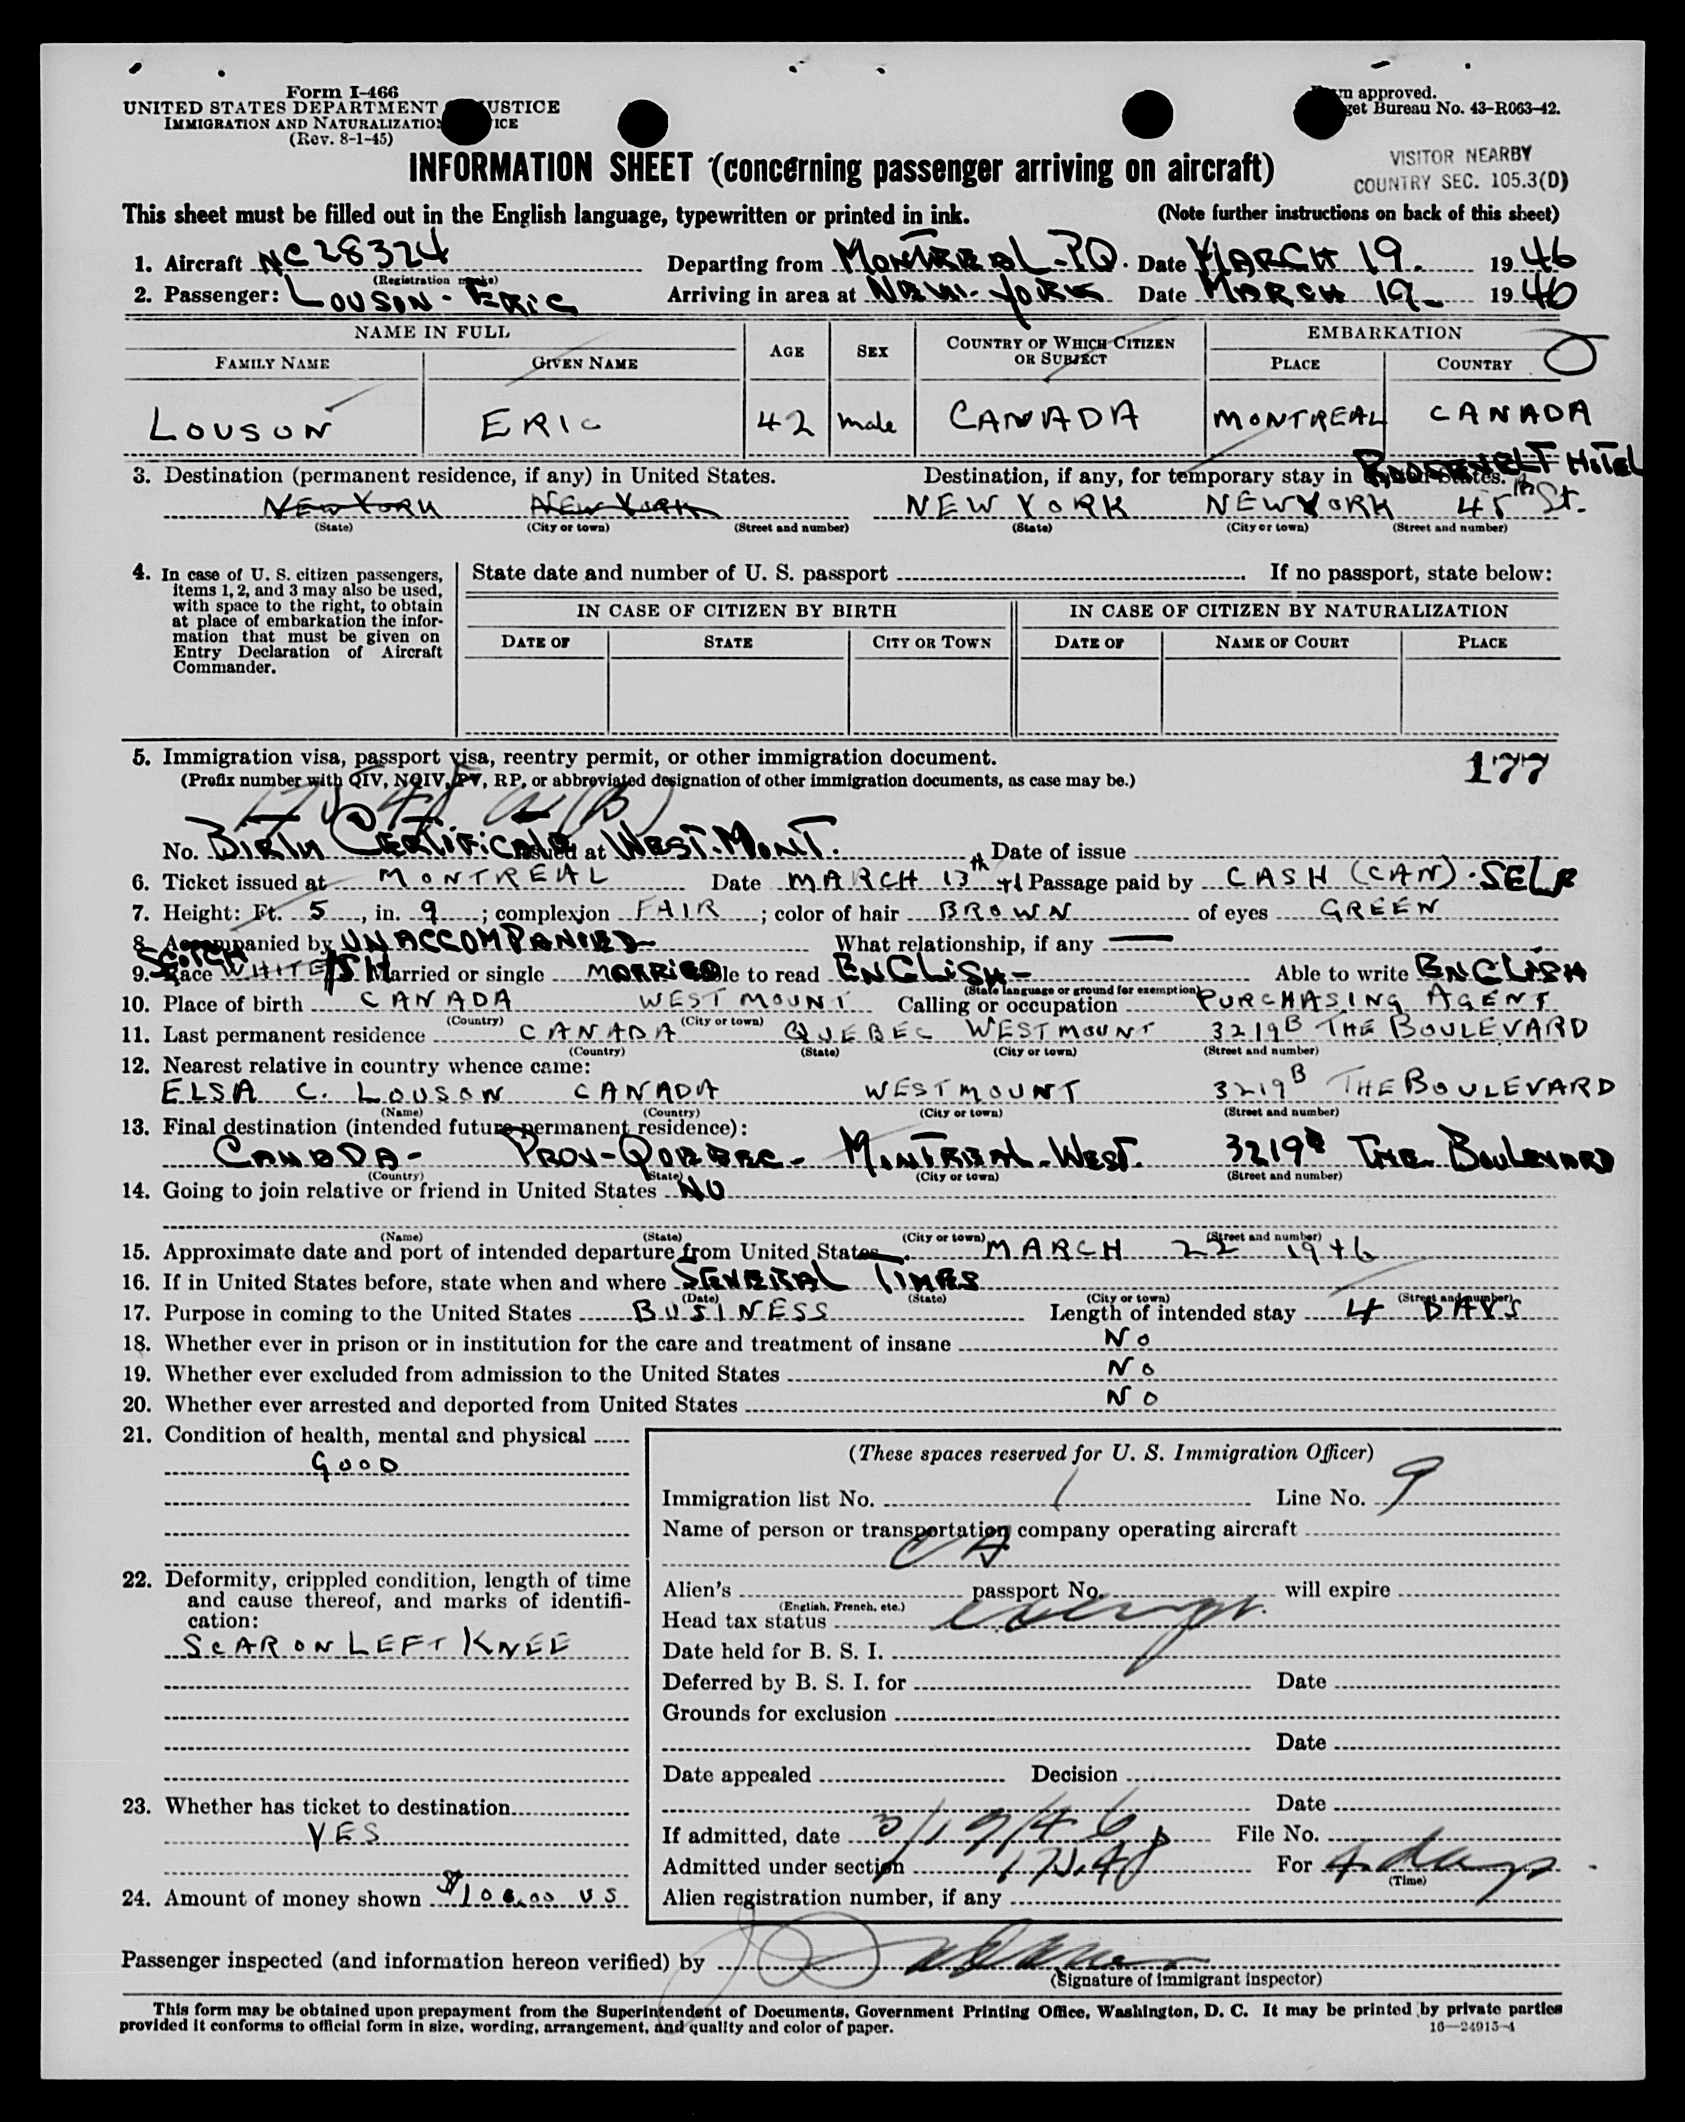 Form I-466
UNITED STATES DEPARTMENT JUSTICE
IMMIGRATION AND NATURALIZATION
(Rev. 8-1-45)
approved.
Bureau No. 43-R063-42.
INFORMATION SHEET (concerning passenger arriving on aircraft)
VISITOR NEARBY
COUNTRY SEC. 105.3(D)
This sheet must be filled out in the English language, typewritten or printed in ink.
(Note further instructions on back of this sheet)
1. Aircraft NC28324 Departing from MONTREAL-PQ. Date MARCH 19. 1946
(Registration marks)
2. Passenger: LOUSON-ERIC Arriving in area at NEW-YORK Date MARCH 19- 1946
NAME IN FULL AGE SEX COUNTRY OF WHICH CITIZEN OR SUBJECT EMBARKATION
FAMILY NAME GIVEN NAME PLACE COUNTRY
LOUSON ERIC 42 male CANADA MONTREAL CANADA
3. Destination (permanent residence, if any) in United States. Destination, if any, for temporary stay in United States. ROOSEVELT HOTEL
NEW YORK NEW YORK NEW YORK NEW YORK 45th St.
(State) (City or town) (Street and number) (State) (City or town) (Street and number)
4. In case of U. S. citizen passengers, items 1, 2, and 3 may also be used, with space to the right, to obtain at place of embarkation the information that must be given on Entry Declaration of Aircraft Commander.
State date and number of U. S. passport . If no passport, state below:
IN CASE OF CITIZEN BY BIRTH IN CASE OF CITIZEN BY NATURALIZATION
DATE OF STATE CITY OR TOWN DATE OF NAME OF COURT PLACE
5. Immigration visa, passport visa, reentry permit, or other immigration document. 177
(Prefix number with QIV, NQIV, PV, RP, or abbreviated designation of other immigration documents, as case may be.)
No. BIRTH CERTIFICATE issued at WEST.MONT. Date of issue
6. Ticket issued at MONTREAL Date MARCH 13th Passage paid by CASH (CAN). SELF
7. Height: Ft. 5, in. 9; complexion FAIR; color of hair BROWN of eyes GREEN
8. Accompanied by UNACCOMPANIED What relationship, if any —
9. Race WHITE SCOTCH Married or single MARRIED Able to read ENGLISH- Able to write ENGLISH
(State language or ground for exemption)
10. Place of birth CANADA WESTMOUNT Calling or occupation PURCHASING AGENT
(Country) (City or town)
11. Last permanent residence CANADA QUEBEC WESTMOUNT 3219B THE BOULEVARD
(Country) (State) (City or town) (Street and number)
12. Nearest relative in country whence came:
ELSA C. LOUSON CANADA WESTMOUNT 3219B THE BOULEVARD
(Name) (Country) (City or town) (Street and number)
13. Final destination (intended future permanent residence):
CANADA- PROV-QUEBEC- MONTREAL-WEST. 3219B THE BOULEVARD
(Country) (State) (City or town) (Street and number)
14. Going to join relative or friend in United States NO
(Name) (State) (City or town) (Street and number)
15. Approximate date and port of intended departure from United States MARCH 22 1946
16. If in United States before, state when and where SEVERAL TIMES
(Date) (State) (City or town) (Street and number)
17. Purpose in coming to the United States BUSINESS Length of intended stay 4 DAYS
18. Whether ever in prison or in institution for the care and treatment of insane NO
19. Whether ever excluded from admission to the United States NO
20. Whether ever arrested and deported from United States NO
21. Condition of health, mental and physical
GOOD
22. Deformity, crippled condition, length of time and cause thereof, and marks of identification:
SCAR ON LEFT KNEE
23. Whether has ticket to destination
YES
24. Amount of money shown $100.00 US
(These spaces reserved for U. S. Immigration Officer)
Immigration list No. 1 Line No. 9
Name of person or transportation company operating aircraft
Alien's passport No. will expire
(English, French, etc.)
Head tax status exempt.
Date held for B. S. I.
Deferred by B. S. I. for Date
Grounds for exclusion
Date
Date appealed Decision
Date
If admitted, date 3/19/46 File No.
Admitted under section For 4 days
(Time)
Alien registration number, if any
Passenger inspected (and information hereon verified) by
(Signature of immigrant inspector)
This form may be obtained upon prepayment from the Superintendent of Documents, Government Printing Office, Washington, D. C. It may be printed by private parties
provided it conforms to official form in size, wording, arrangement, and quality and color of paper.
16—24915-4